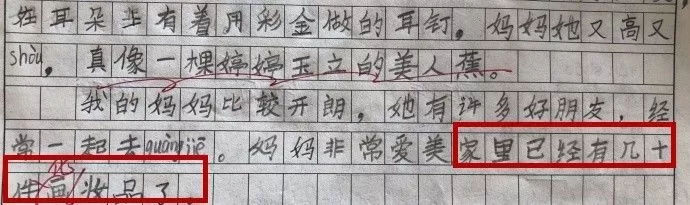 在耳朵上有着用彩金做的耳钉，妈妈她又高又
shòu，真像一棵婷婷玉立的美人蕉。
我的妈妈比较开朗，她有许多好朋友，经
常一起去guàngjiē。妈妈非常爱美家里已经有几十
件画妆品了，